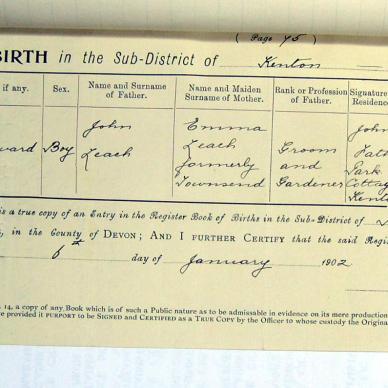 ( Page 45 )
BIRTH in the Sub-District of Kenton
if any. Sex. Name and Surname of Father. Name and Maiden Surname of Mother. Rank or Profession of Father. Signature Residence
ward Boy John Leach Emma Leach formerly Townsend Groom and Gardener John Park Cottage Kenton
is a true copy of an Entry in the Register Book of Births in the Sub-District of
, in the County of DEVON; AND I FURTHER CERTIFY that the said Regis
6th day of January 1902
14, a copy of any Book which is of such a Public nature as to be admissible in evidence on its mere production
provided it purport to be SIGNED and CERTIFIED as a TRUE COPY by the Officer to whose custody the Original